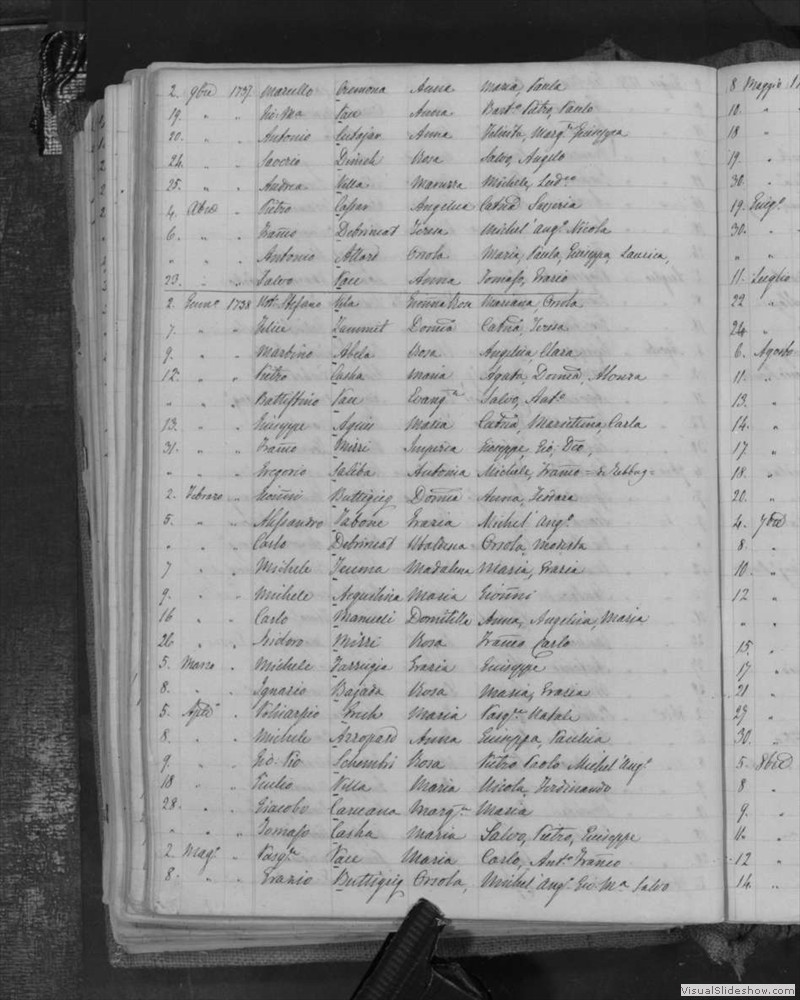 2. 9bre 1737 Marcello Cremona Anna Maria, Paula
19. " " Gio. Ma Pace Anna Bart.o Pietro, Paulo
20. " " Antonio Cutajar Anna Felicita, Marg.a Giuseppa
24. " " Saverio Dimech Rosa Salvo, Angelo
25. " " Andrea Villa Maruzza Michele, Lud.co
4. Xbre " Pietro Caspar Angelica Catnā
6. " " Franco Debrincat Teresa Michel Ang.o Nicola
" " " Antonio Attard Orsola Maria, Paulo, Giuseppa, Laurica,
23. " " Salvo Pace Anna Tomaso, Grazio
2. Genn.o 1738 Not. Stefano Vella Rosa Mariana Orsola
7. " " Felice Zammit Domca Catnā, Teresa
9. " " Martino Abela Rosa Angelica, Clara
12. " " Pietro Casha Maria Agata, Domca, Alonza
" " " Battistino Pace Evang.a Salvo, Ant.o
13. " " Giuseppe Agius Maria Catnā, Carla
31. " " Franco Mizzi Imperia Giuseppe, Gio, Dio,
" " " Gregorio Saliba Antonia Michele, Franco = di Zebbug =
2. Febraro " Gionni Buttigieg Domca Anna, Ferrara
5. " " Alessandro Tabone Grazia Michel' Ang.o
" " " Carlo Debrincat Ubaldesca Orsola, Modesta
7 " " Michele Teuma Madalena Maria, Grazia
9. " " Michele Argustina Maria Gionni
16 " " Carlo Manueli Domitilla Anna, Angelica, Maria
26 " " Isidoro Mizzi Rosa Franco Carlo
5. Marzo " Michele Farrugia Grazia Giuseppe
8. " " Ignazio Bajada Rosa Maria, Grazia
5. Aple " Policarpio Grech Maria Pasq.le Natale
8. " " Michele Azzopard Anna Giuseppa, Paulica
9. " " Gio. Pio Schembri Rosa Pietro Paolo Michel' Ang.o
18 " " Giulio Villa Maria Nicola, Ferdinando
28. " " Giacobo Caruana Marg.a Maria
" " " Tomaso Casha Maria Salvo, Pietro, Giuseppe
2. Mag.o " Pasq.le Pace Maria Carlo, Ant.o Franco
8. " " Grazio Buttigieg Orsola, Michel' Ang.o Gio Ma Salvo
8 Maggio
10. "
18 "
19. "
30. "
19. Giug.o
30. "
" "
11. Luglio
22 "
24 "
6. Agosto
11. "
13. "
14. "
17. "
18. "
20. "
4. 7bre
8. "
10. "
12 "
" "
15. "
17 "
21 "
27 "
30. "
5. 8bre
8 "
9. "
11. "
12 "
14. "
VisualSlideshow.com